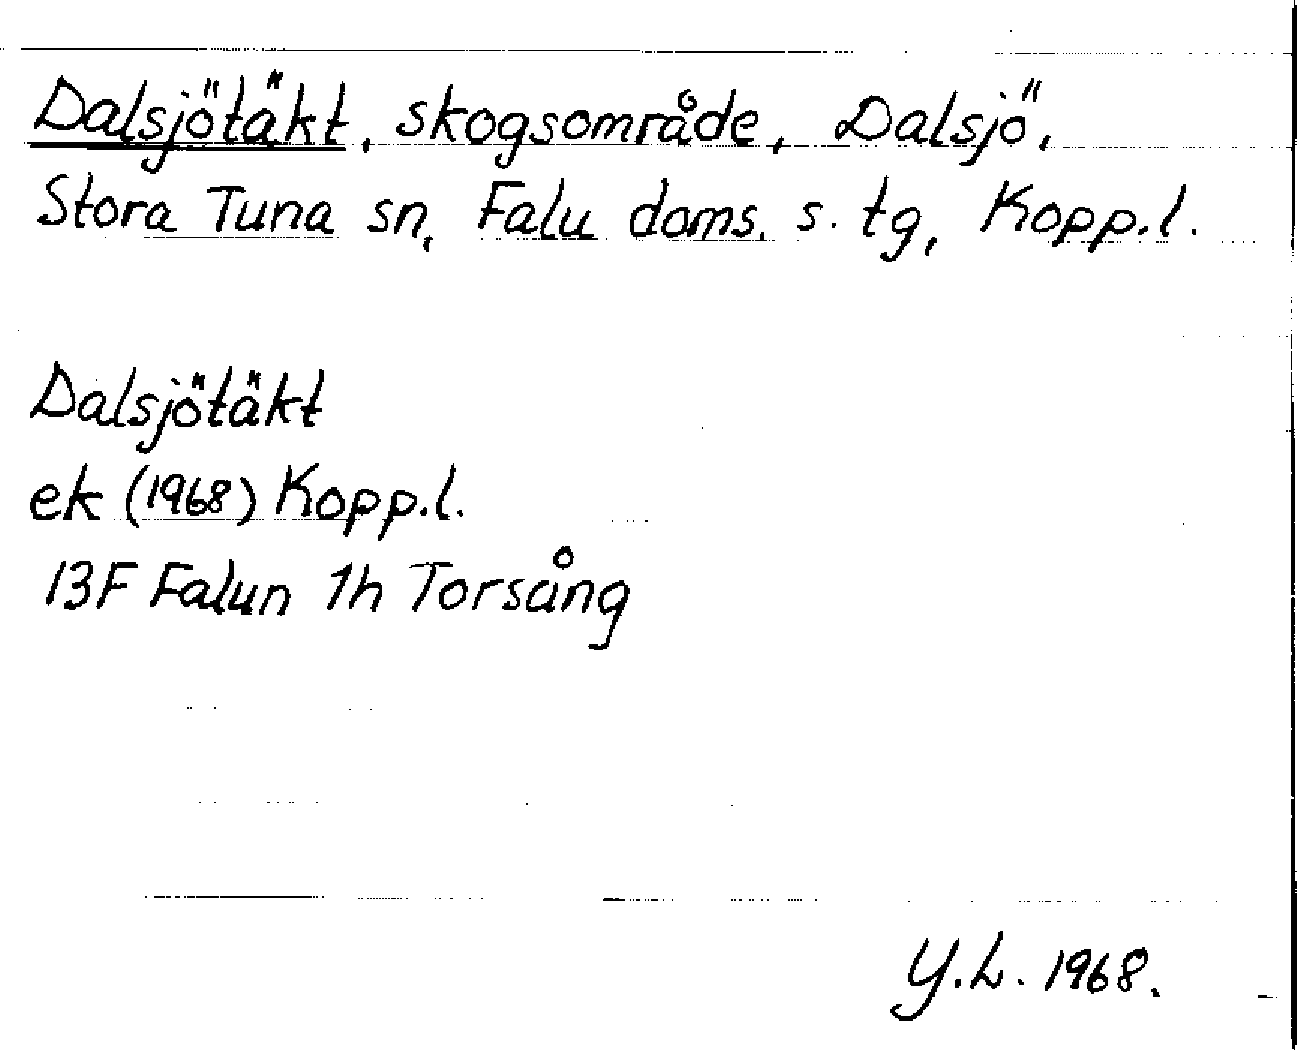 Dalsjötäkt, skogsområde, Dalsjö,
Stora Tuna sn, Falu doms. s. tg, Kopp.l.
Dalsjötäkt
ek (1968) Kopp.l.
13F Falun 1h Torsång
Y.L. 1968.